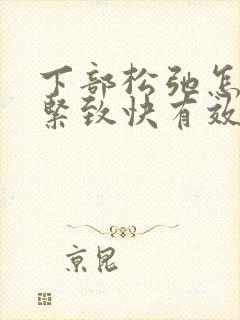 下部松弛怎
紧致快有效
京昆